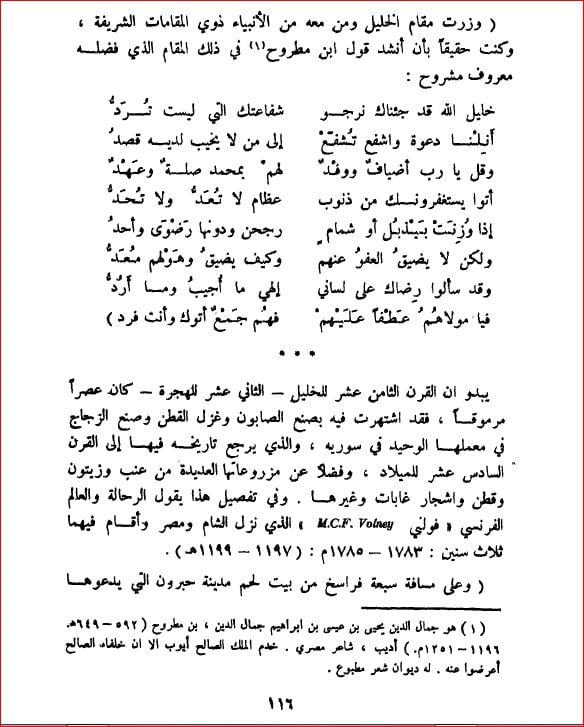 ( وزرت مقام الخليل ومن معه من الأنبياء ذوي المقامات الشريفة ،
وكنت حقيقاً بأن أنشد قول ابن مطروح(١) في ذلك المقام الذي فضلـــه
معروف مشروح :
خليل الله قد جئناك نرجــو شفاعتك التي ليست تُــرَدُّ
أَنِلْنــا دعوة واشفع تُشَفَّعْ إلى من لا يخيب لديــه قصدُ
وقل يا رب أضيافٌ ووفدٌ لهمْ بمحمد صلــةٌ وعَهْــدٌ
أتوا يستغفرونــك من ذنوب عظام لا تُعَــدُّ ولا تُحَــدُّ
إذا وُزِنَتْ بِيَذْبــلُ أو شمامٍ رجحن ودونها رَضْوَى وأحدُ
ولكن لا يضيقُ العفوُ عنهم وكيف يضيقُ وهَوْلهم مُعَــدُّ
وقد سألوا رِضاك على لساني إلهي ما أُجيبُ ومــا أَرُدُّ
فيا مولاهُــمُ عَطْفــاً عَلَيْهمْ فهُم جَمْعٌ أتوك وأنت فرد )
• • •
يبدو ان القرن الثامن عشر للخليل – الثاني عشر للهجرة – كان عصراً
مرموقــاً ، فقد اشتهرت فيه بصنع الصابون وغزل القطن وصنع الزجاج
في معملهــا الوحيد في سوريه ، والذي يرجع تاريخــه فيهــا إلى القرن
السادس عشر للميلاد ، وفضلا عن مزروعاتها العديدة من عنب وزيتون
وقطن واشجار غابات وغيرهــا . وفي تفصيل هذا يقول الرحالة والعالم
الفرنسي « فولني M.C.F. Volney » الذي نزل الشام ومصر وأقــام فيهما
ثلاث سنين : ١٧٨٣ – ١٧٨٥م : (١١٩٧ – ١١٩٩هـ) .
( وعلى مسافة سبعة فراسخ من بيت لحم مدينة حبرون التي يدعوهــا
(١) هو جمال الدين يحيى بن عيسى بن ابراهيم جمال الدين ، بن مطروح (٥٩٢ – ٦٤٩هـ
١١٩٦ – ١٢٥١م.) أديب ، شاعر مصري . خدم الملك الصالح أيوب الا ان خلفاء الصالح
أعرضوا عنه . له ديوان شعر مطبوع .
١١٦